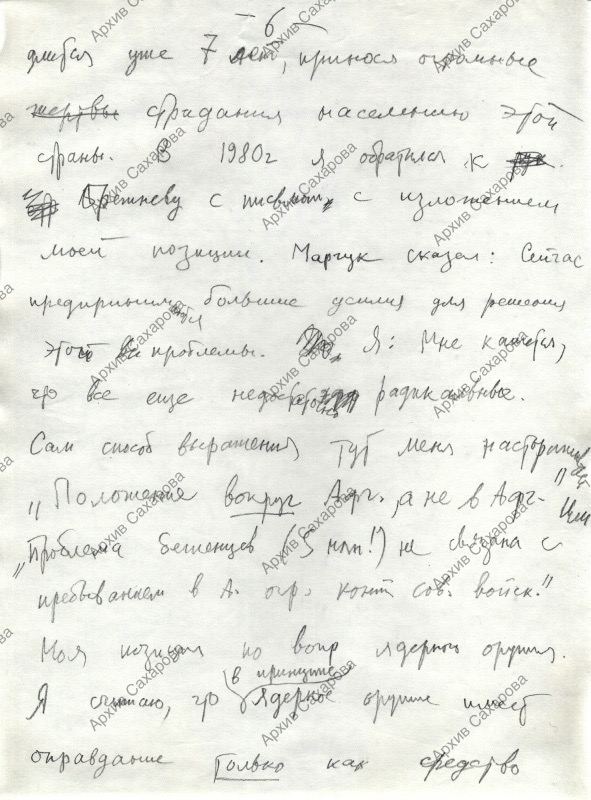 – 6 –
длится уже 7 лет, принося огромные
жертвы страдания населению этой
страны. В 1980г я обратился к
Брежневу с письмом, с изложением
моей позиции. Марчук сказал: Сейчас
предпринимаются большие усилия для решения
этой проблемы. Я: Мне кажется,
что все еще недостаточно радикальные.
Сам способ выражения тут меня настораживает
„Положение вокруг Афг., а не в Афг- Или
„Проблема беженцев (5 млн!) не связана с
пребыванием в А. огр. конт сов. войск."
Моя позиция по вопр ядерного оружия.
Я считаю, что в принципе ядерное оружие имеет
оправдание только как средство
Архив Сахарова